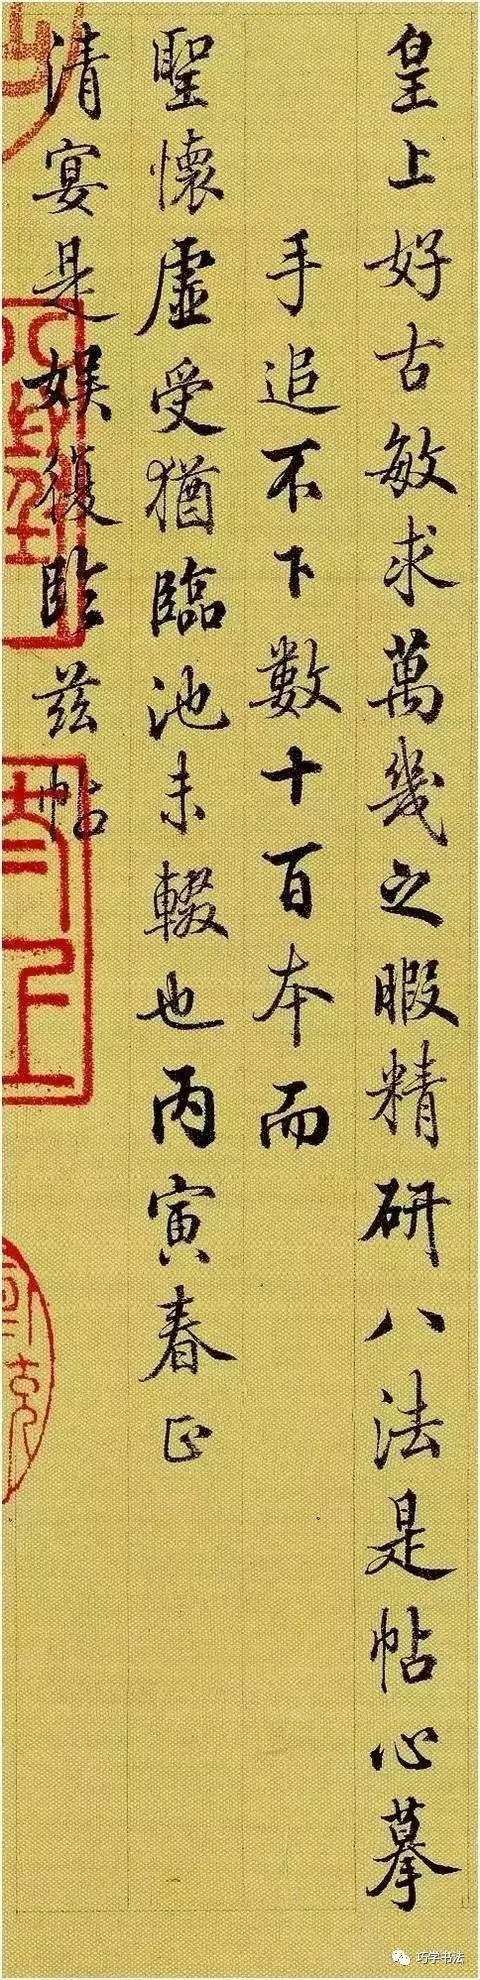 皇上好古敏求萬幾之暇精研八法是帖心摹
手追不下數十百本而
聖懷虛受猶臨池未輟也丙寅春正
清宴是娱復臨兹帖
巧学书法